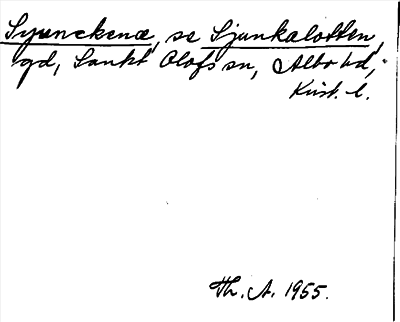 Syunckenæ, se Sjunkalotten,
gd, Sankt Olofs sn, Albo hd,
Krist. l.
Th. A. 1955.